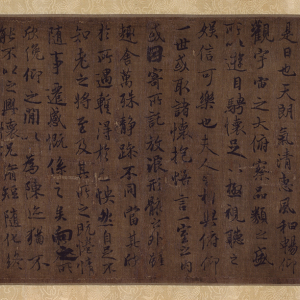 是日也天朗氣清惠風和暢仰
觀宇宙之大俯察品類之盛
所以遊目騁懷足以極視聽之
娛信可樂也夫人之相與俯仰
一世或取諸懷抱悟言一室之內
或因寄所託放浪形骸之外雖
趣舍萬殊靜躁不同當其欣
於所遇暫得於己怏然自足不
知老之將至及其所之既惓情
隨事遷感慨係之矣向之所
欣俛仰之閒以為陳迹猶不
能不以之興懷況脩短隨化終